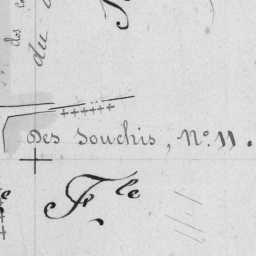 des
du
Des Souchis, N.o 11.
F.le